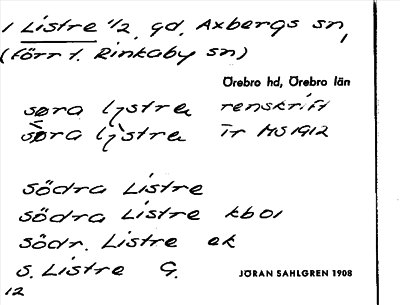 1 Listre 1/2, gd, Axbergs sn,
(förr t. Rinkaby sn)
Örebro hd, Örebro län
søra ljstrɐ renskrift
sø̀ra lj`strɐ Ir MS 1912
Södra Listre
Södra Listre kb 01
Södr. Listre ek
S. Listre G.
JÖRAN SAHLGREN 1908
12